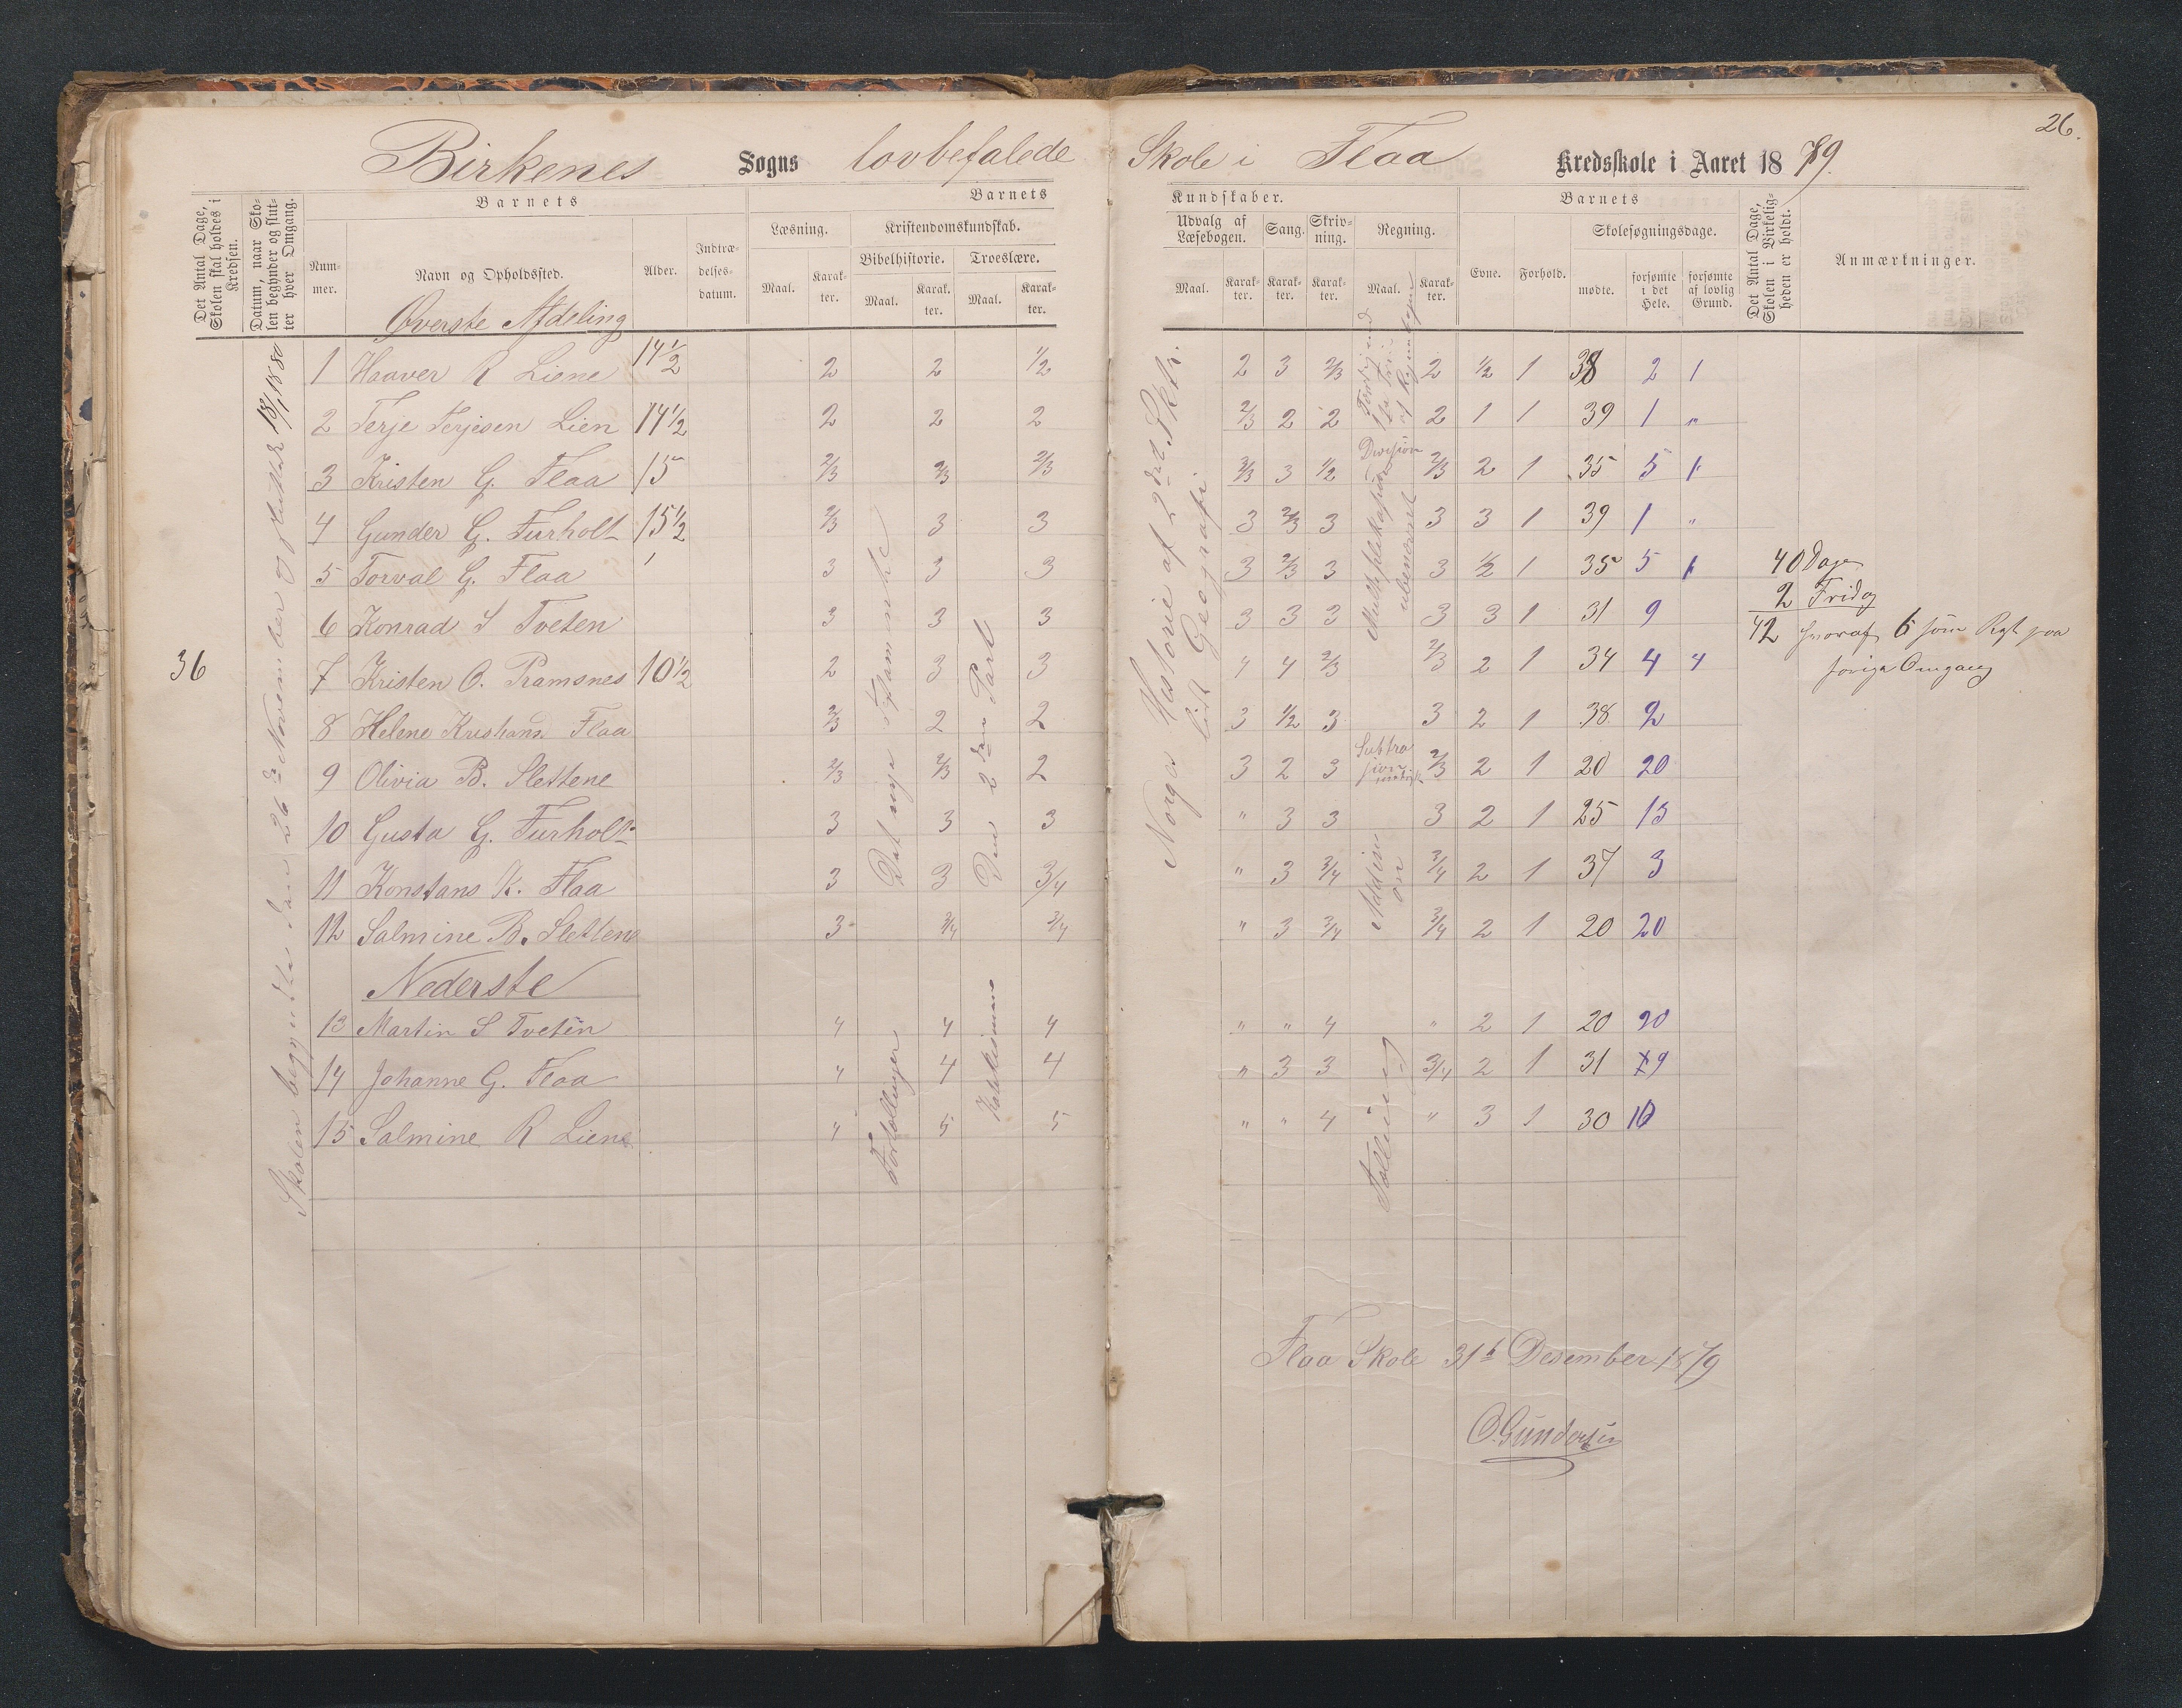 26.
Birkenes Sogns lovbefalede Skole i Flaa Kredsskole i Aaret 1879.
Det Antal Dage, Skolen skal holdes i Kredsen.
Datum, naar Skolen begynder og slutter hver Omgang.
Barnets
Nummer.
Navn og Opholdssted.
Alder.
Indtrædelsesdatum.
Barnets
Læsning.
Maal.
Karakter.
Kristendomskundskab.
Bibelhistorie.
Maal.
Karakter.
Troeslære.
Maal.
Karakter.
Kundskaber.
Udvalg af Læsebogen.
Maal.
Karakter.
Sang.
Karakter.
Skrivning.
Karakter.
Regning.
Maal.
Karakter.
Barnets
Evne.
Forhold.
Skolesøgningsdage.
mødte.
forsømte i det Hele.
forsømte af lovlig Grund.
Det Antal Dage, Skolen i Virkeligheden er holdt.
Anmærkninger.
Øverste Afdeling
36
Skolen begyndte den 26de November og sluttet 13/1 1880
Det nye Testamente
Den 2den Part
Norges Historie af 2det Skft.
lidt Geografi
Division
Multiplikasjon
ubenævnt
Addision
1 Haaver R Liene 14½ 2 2 ½ 2 3 2/3 2 ½ 1 38 2 1
2 Terje Terjesen Lien 14½ 2 2 2 2/3 2 2 2 1 1 39 1 "
3 Kristen G. Flaa 15 2/3 2/3 2/3 2/3 3 ½ 2/3 2 1 35 5 1
4 Gunder G. Furholt 15½ 2/3 3 3 3 2/3 3 3 3 1 39 1 "
5 Torval G. Flaa 3 3 3 3 2/3 3 3 ½ 1 35 5 1
6 Konrad S Tveten 3 3 3 3 3 3 3 3 1 31 9
7 Kristen O. Pramsnes 10½ 2 3 3 4 4 2/3 2/3 2 1 34 4 4
8 Helene Kristians Flaa 2/3 2 2 3 ½ 3 3 2 1 38 2
9 Olivia B. Slettene 2/3 2/3 2 3 2 3 2/3 2 1 20 20
10 Gusta G. Furholt 3 3 3 " 3 3 3 2 1 25 15
11 Konstans K. Flaa 3 3 3/4 " 3 3/4 3/4 2 1 37 3
12 Salmine B. Slettene 3 3/4 3/4 " 3 3/4 3/4 2 1 20 20
40 Dage
2 Fridag
42 hvoraf 6 som Rest paa
forige Omgang
Nederste
Fortællinger
Katekismus
Tælling
13 Martin S Tveten 4 4 4 " " 4 " 2 1 20 20
14 Johanne G. Flaa 4 4 4 " 3 3 3/4 2 1 31 9
15 Salmine R Liene 4 5 5 " " 4 " 3 1 30 10
Flaa Skole 31t Desember 1879
O. Gundersen